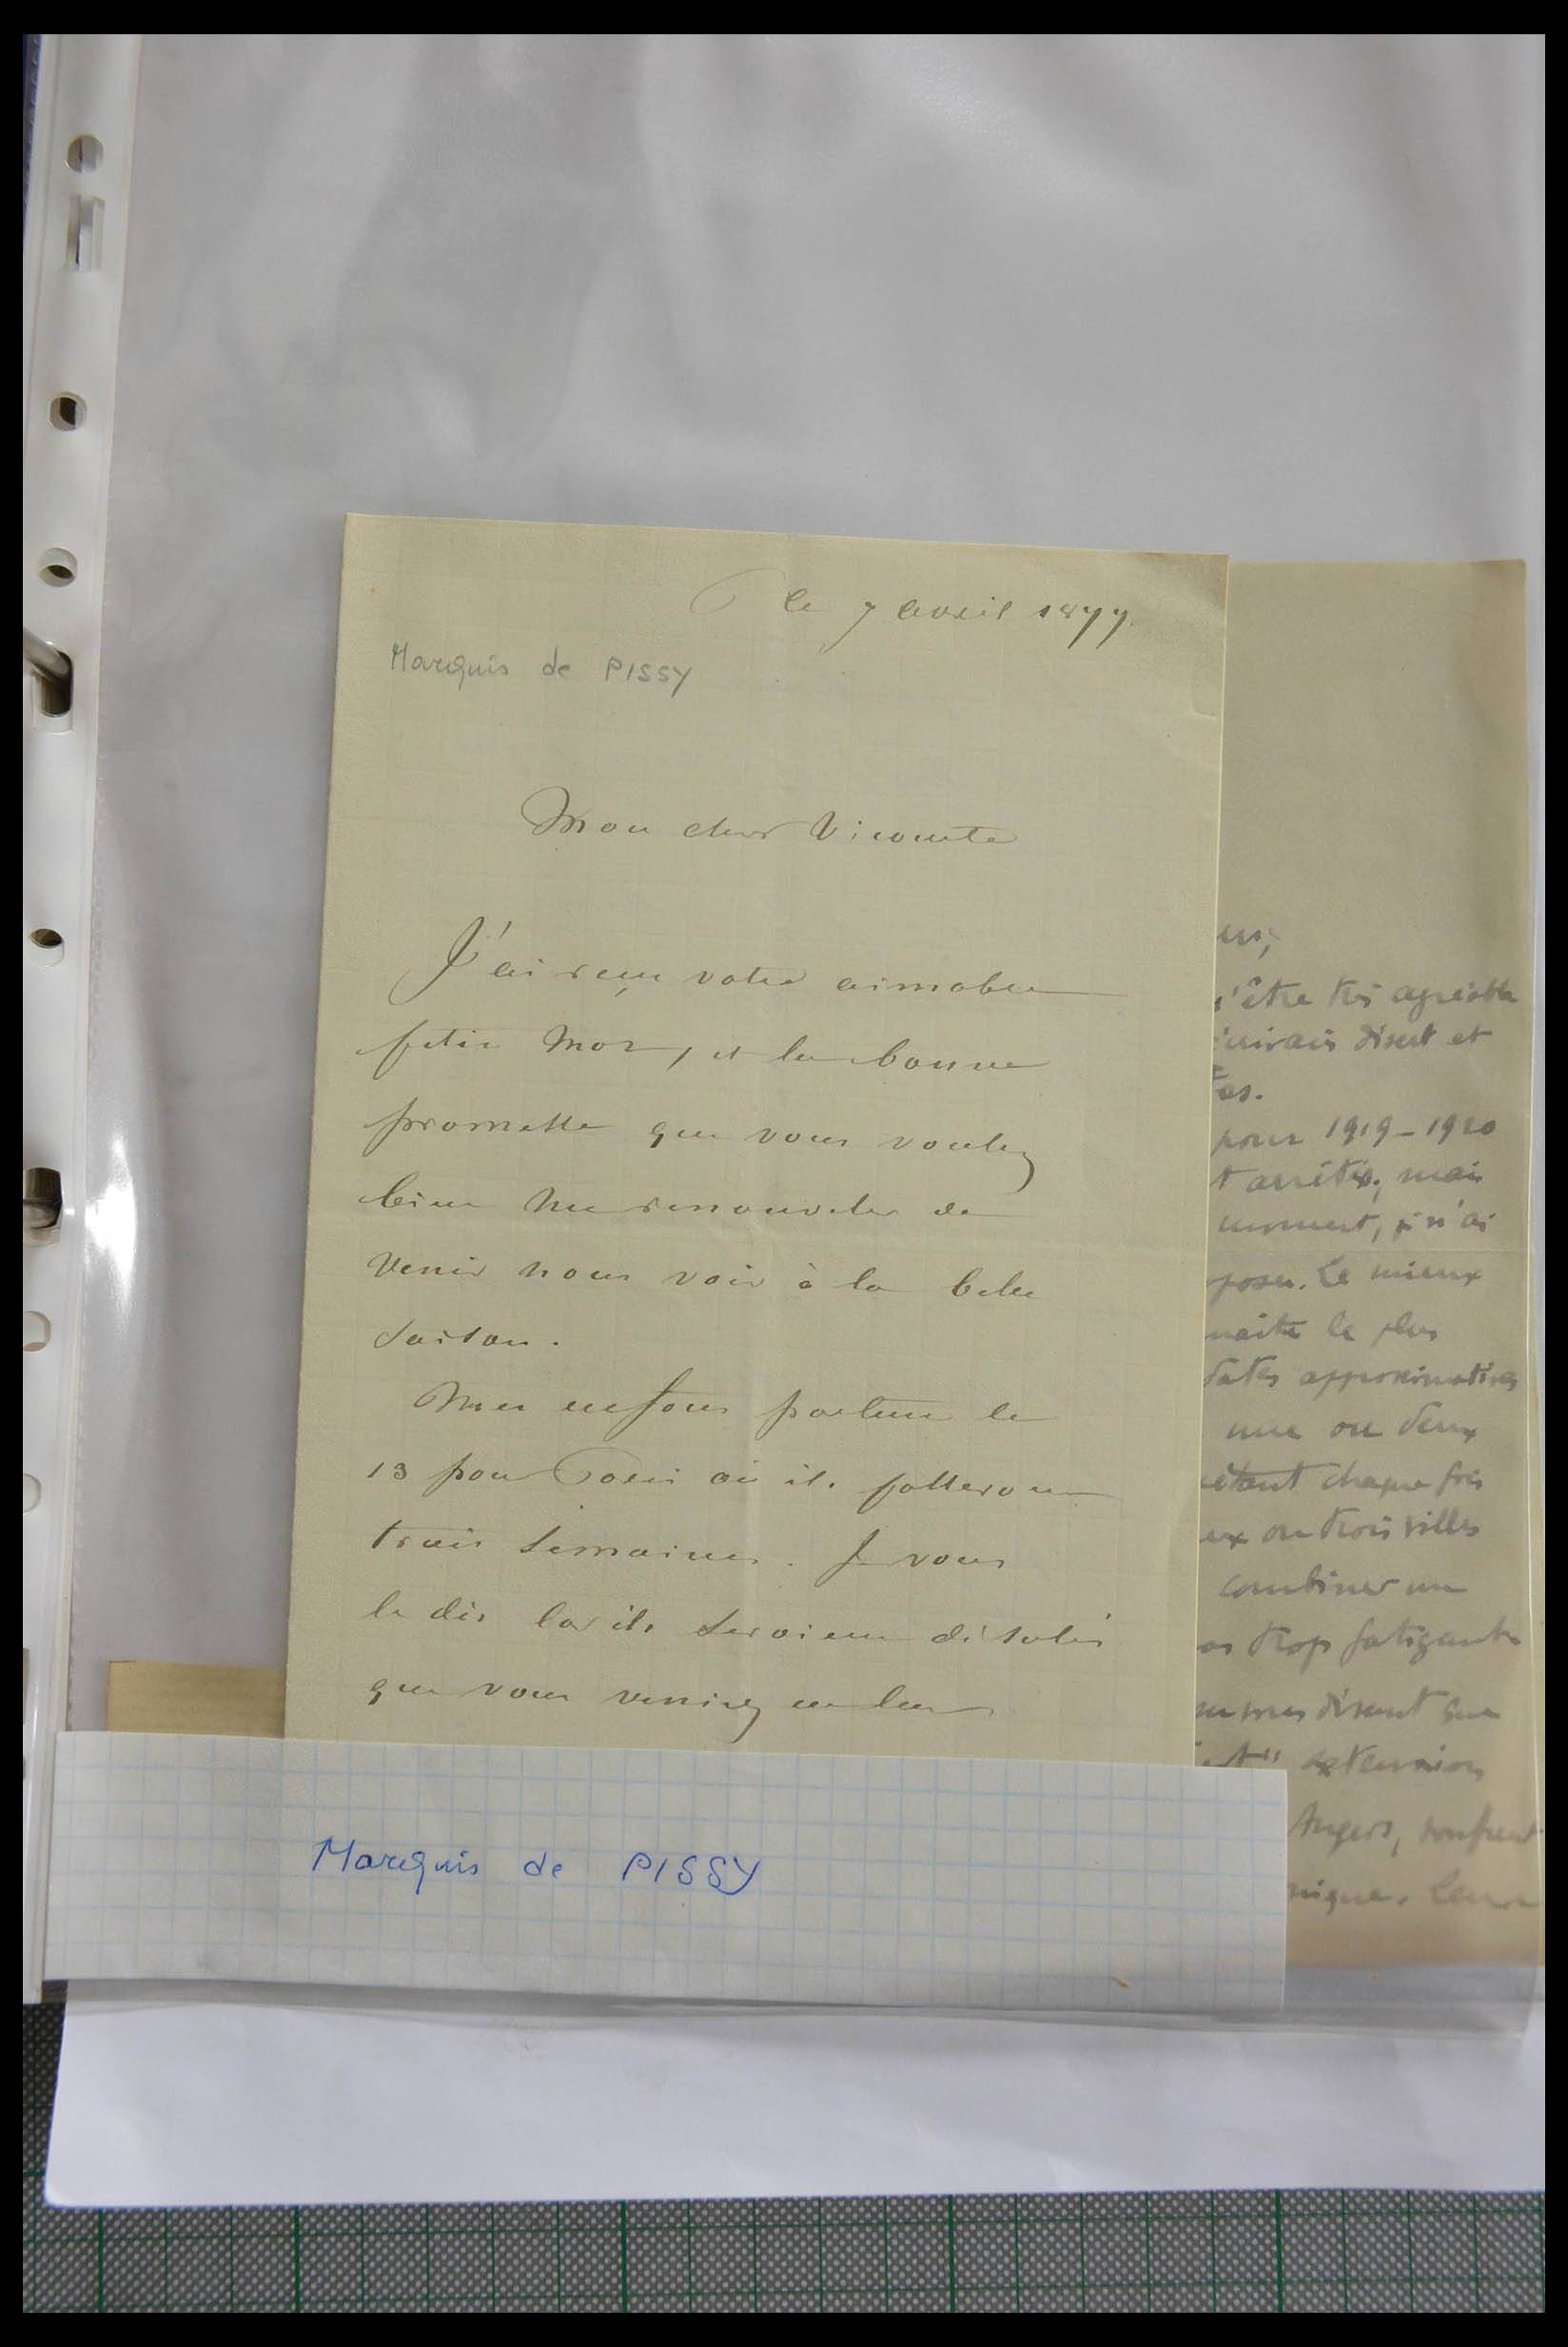 le 7 avril 1877
Marquis de PISSY
Mon cher Vicomte
J'ai reçu votre aimable
petit mot, et la bonne
promesse que vous voulez
bien me renouveler de
venir nous voir à la belle
saison.
Mes enfans partent le
13 pour Paris où ils passeront
trois semaines. Je vous
le dis car ils seroient désolés
que vous veniez en leur
Marquis de PISSY
être très agréable
disent et
pour 1919-1920
mais
moment, je n'ai
poser. Le mieux
le plus
dates approximatives
une ou deux
chaque fois
ou trois villes
combiner un
trop fatigante
disent que
extension
Angers,